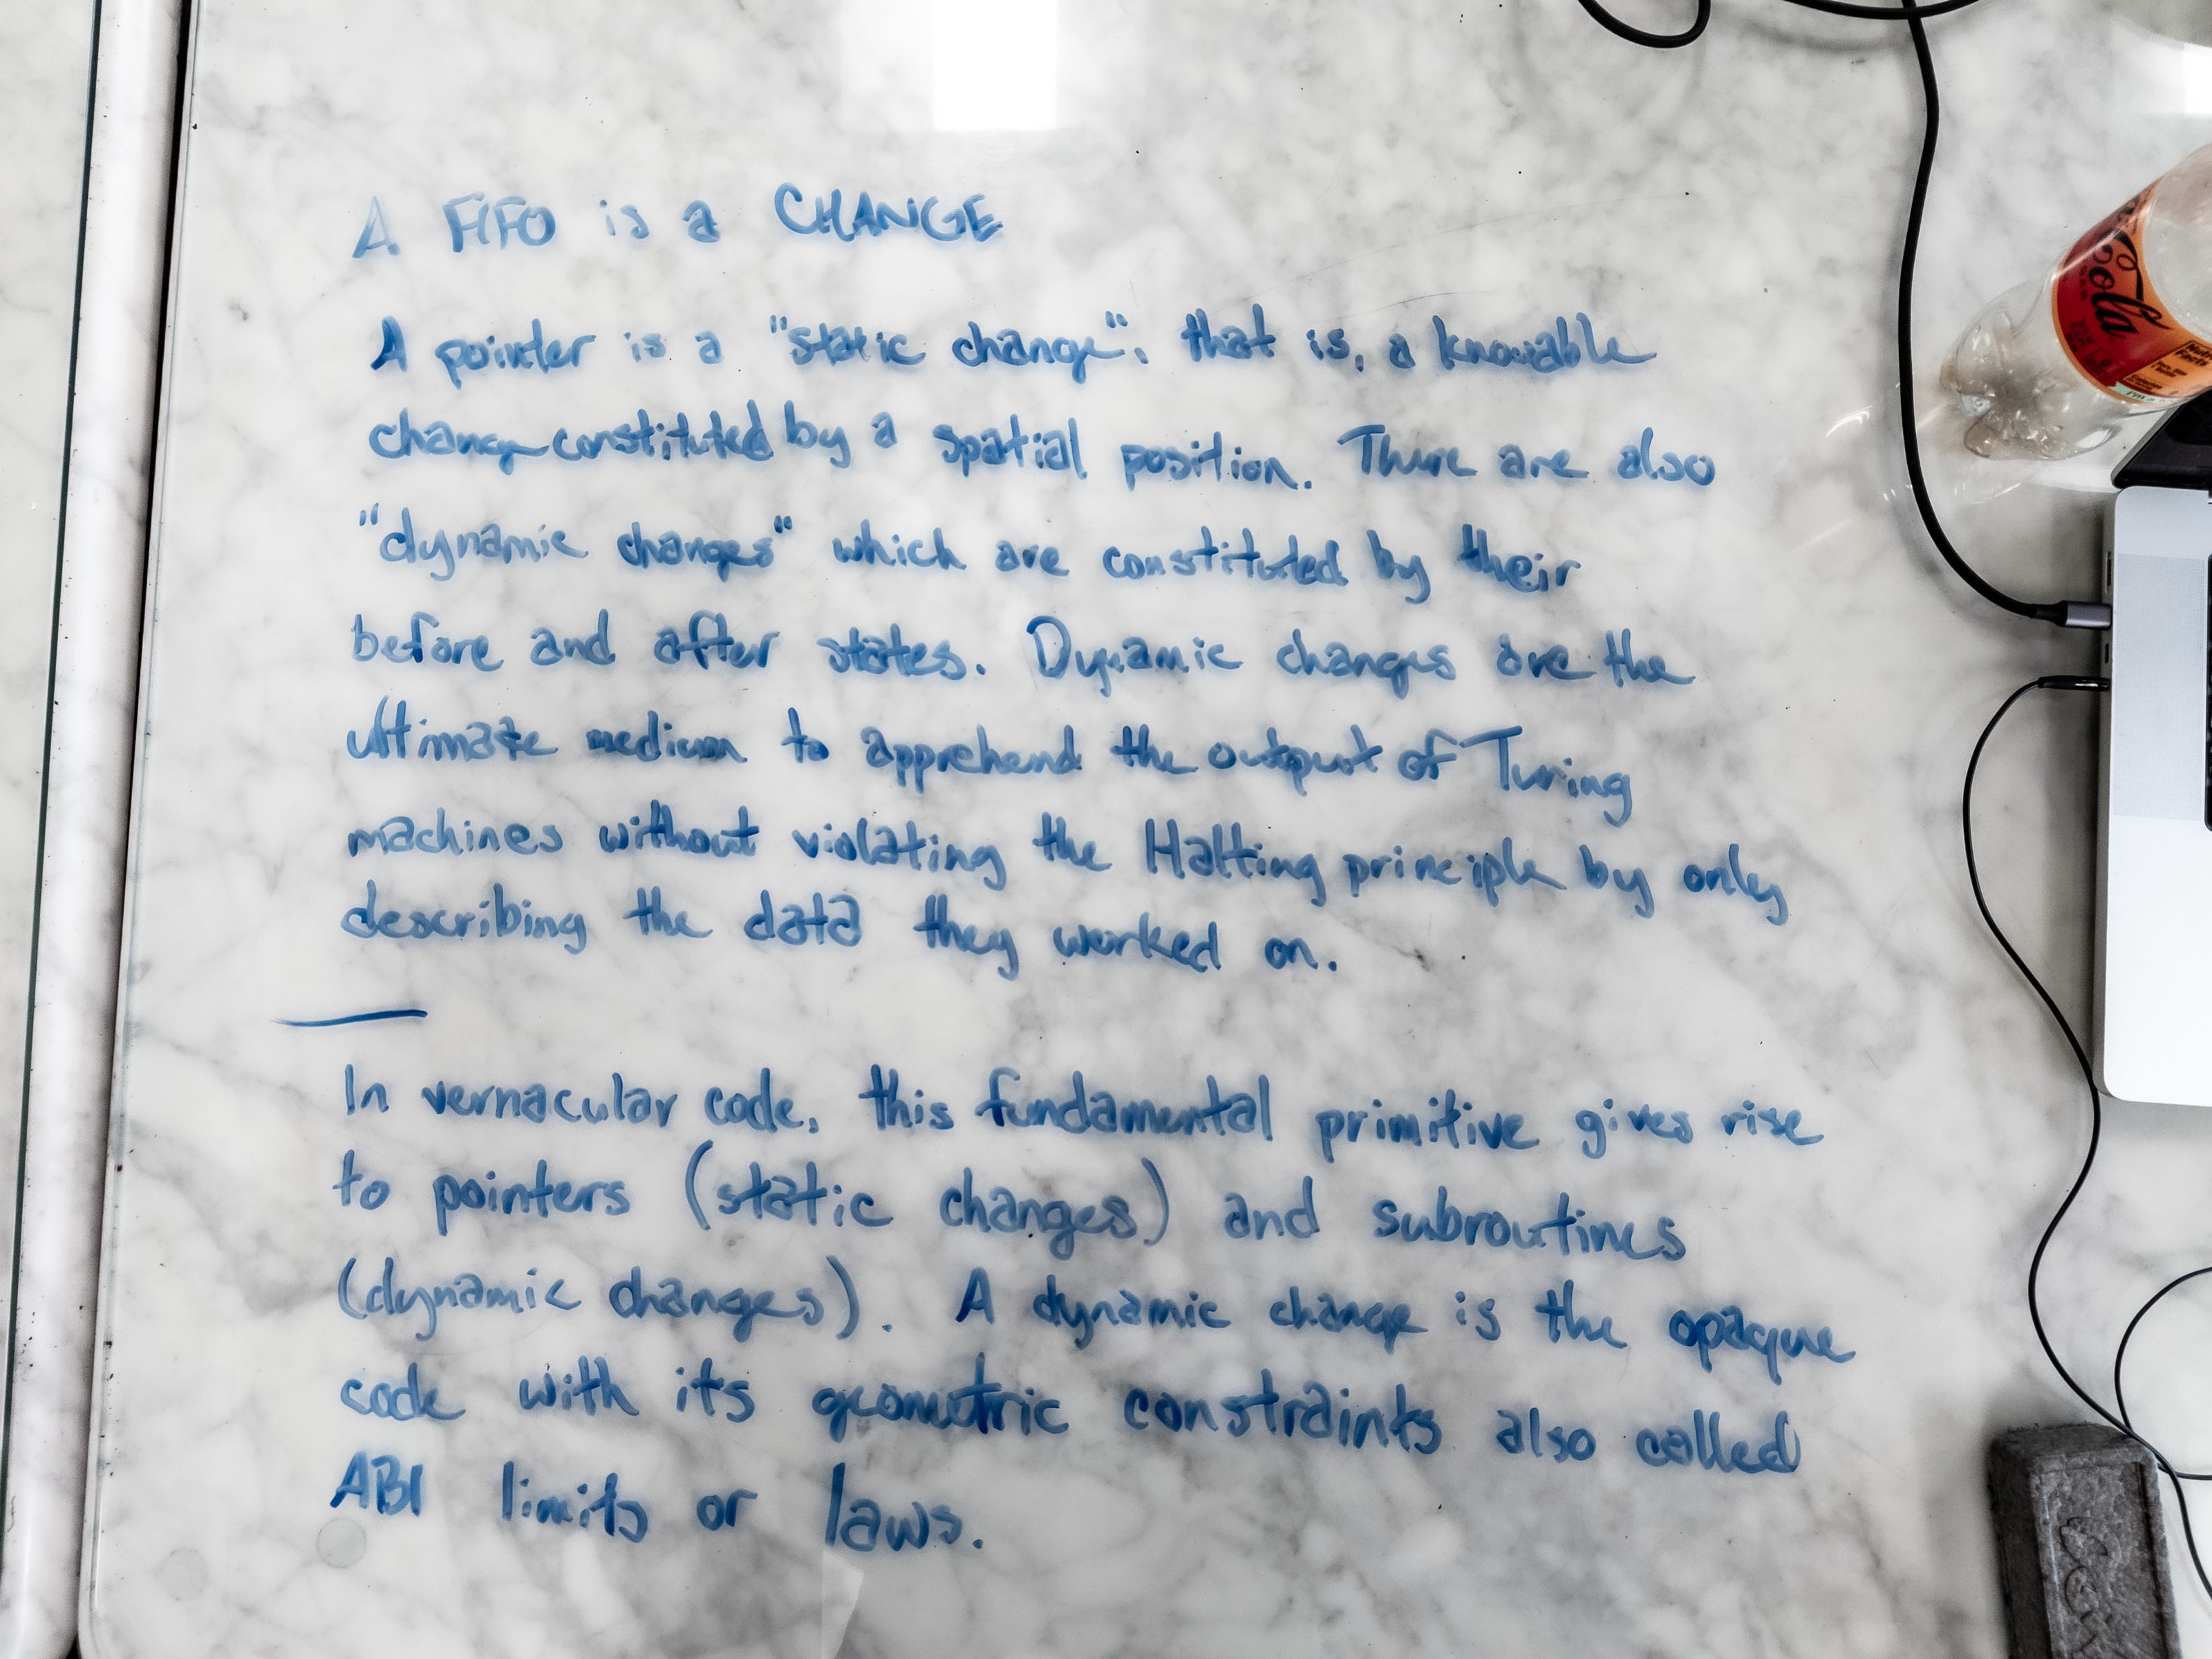 A FIFO is a CHANGE
A pointer is a "static change": that is, a knowable
change constituted by a spatial position. There are also
"dynamic changes" which are constituted by their
before and after states. Dynamic changes are the
ultimate medium to apprehend the output of Turing
machines without violating the Halting principle by only
describing the data they worked on.
In vernacular code, this fundamental primitive gives rise
to pointers (static changes) and subroutines
(dynamic changes). A dynamic change is the opaque
code with its geometric constraints also called
ABI limits or laws.
Cola